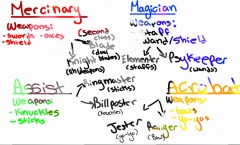 Mercinary
Weapons:
-swords -axes
-shield
Magician
Weapons:
-staff
-wand/shield
(second class)
Blade
(dual blades)
Knight
(all weapons)
Elementer
(staffs)
PsyKeeper
(wands)
Assist
Weapons:
-Knuckles
-sticks
Ringmaster
(sticks)
Billposter
(knuckles)
Acrobat
Weapons:
-bows
-yo-yos
Jester
(yo-yo)
Ranger
(Bow)